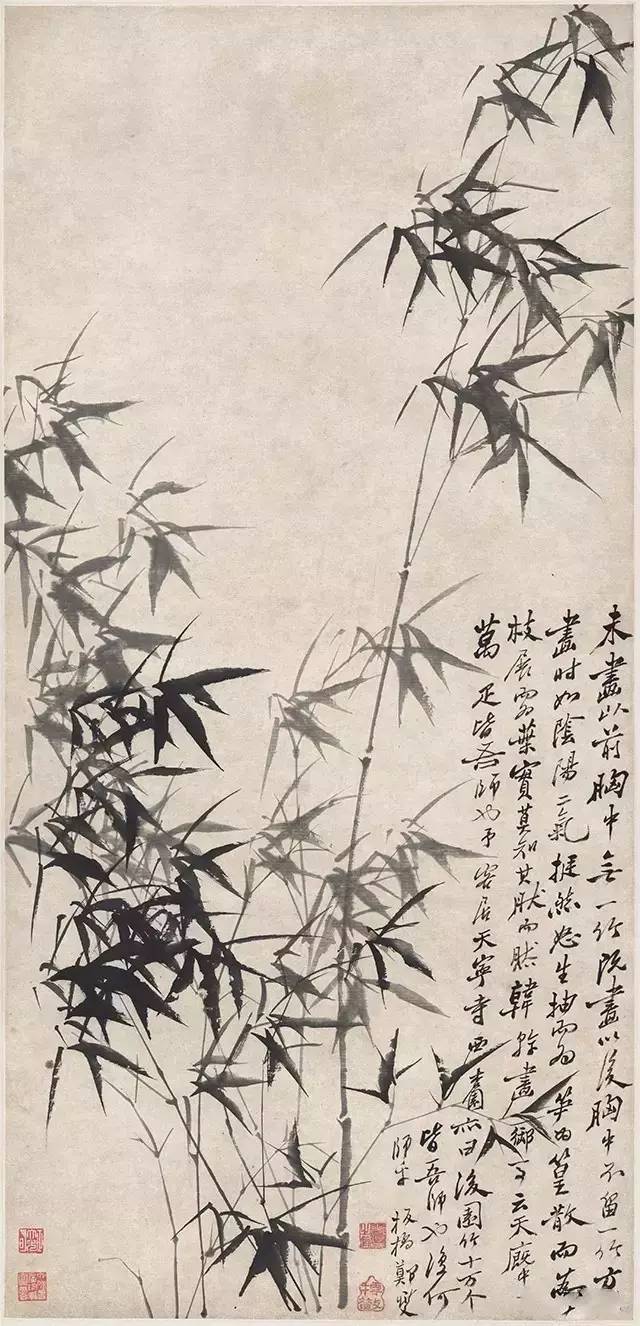 未畫以前胸中無一竹既畫以後胸中不留一竹方
畫时如陰陽二氣挺然怒生抽而為笋為篁散而為
枝展而為葉實莫知其然而然韓幹畫御馬云天廐中十
萬疋皆吾師也予客居天寧寺西杏園亦曰後園竹十万个
皆吾師也復何
師乎 板橋鄭燮